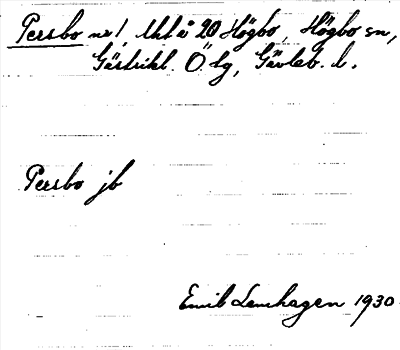 Persbo nr 1, Uhl å 20 Högbo, Högbo sn,
Gästrikl. Ö. tg, Gävleb. l.
Persbo jb
Emil Lenhagen 1930